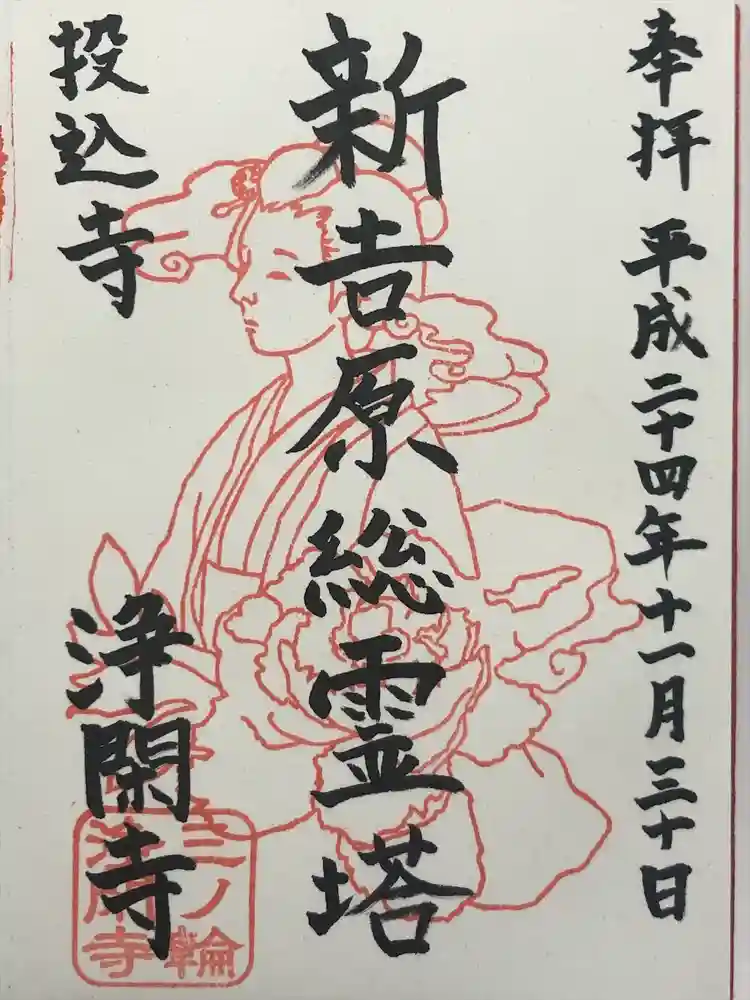 奉拝 平成二十四年十一月三十日
新吉原総霊塔
投込寺
浄閑寺
三ノ輪
浄閑寺